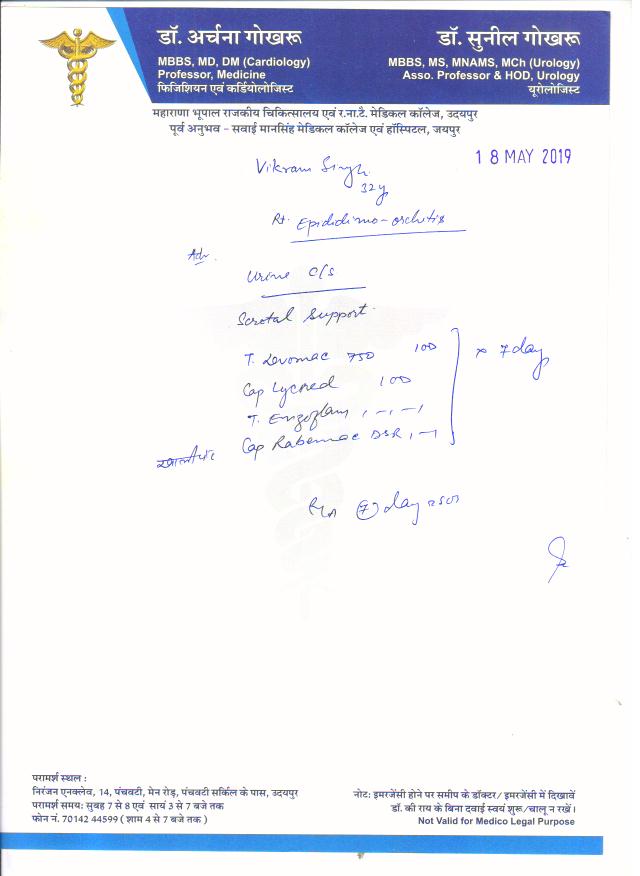 डॉ. अर्चना गोखरू
MBBS, MD, DM (Cardiology)
Professor, Medicine
फिजिशियन एवं कर्डियोलोजिस्ट
डॉ. सुनील गोखरू
MBBS, MS, MNAMS, MCh (Urology)
Asso. Professor & HOD, Urology
यूरोलोजिस्ट
महाराणा भूपाल राजकीय चिकित्सालय एवं र.ना.टै. मेडिकल कॉलेज, उदयपुर
पूर्व अनुभव - सवाई मानसिंह मेडिकल कॉलेज एवं हॉस्पिटल, जयपुर
18 MAY 2019
Vikram Singh
32y
Rt. Epididimo-orchitis
Adv.
Urine C/S
Scrotal Support
T. Levomac 750 100
Cap Lycored 100
T. Enzoflam 1-1-1
Cap Rabemac DSR 1-1
x 7 day
7 day
परामर्श स्थल :
निरंजन एनक्लेव, 14, पंचवटी, मेन रोड़, पंचवटी सर्किल के पास, उदयपुर
परामर्श समय: सुबह 7 से 8 एवं सायं 3 से 7 बजे तक
फोन नं. 70142 44599 ( शाम 4 से 7 बजे तक )
नोट: इमरजेंसी होने पर समीप के डॉक्टर/ इमरजेंसी में दिखावें
डॉ. की राय के बिना दवाई स्वयं शुरू/चालू न रखें।
Not Valid for Medico Legal Purpose